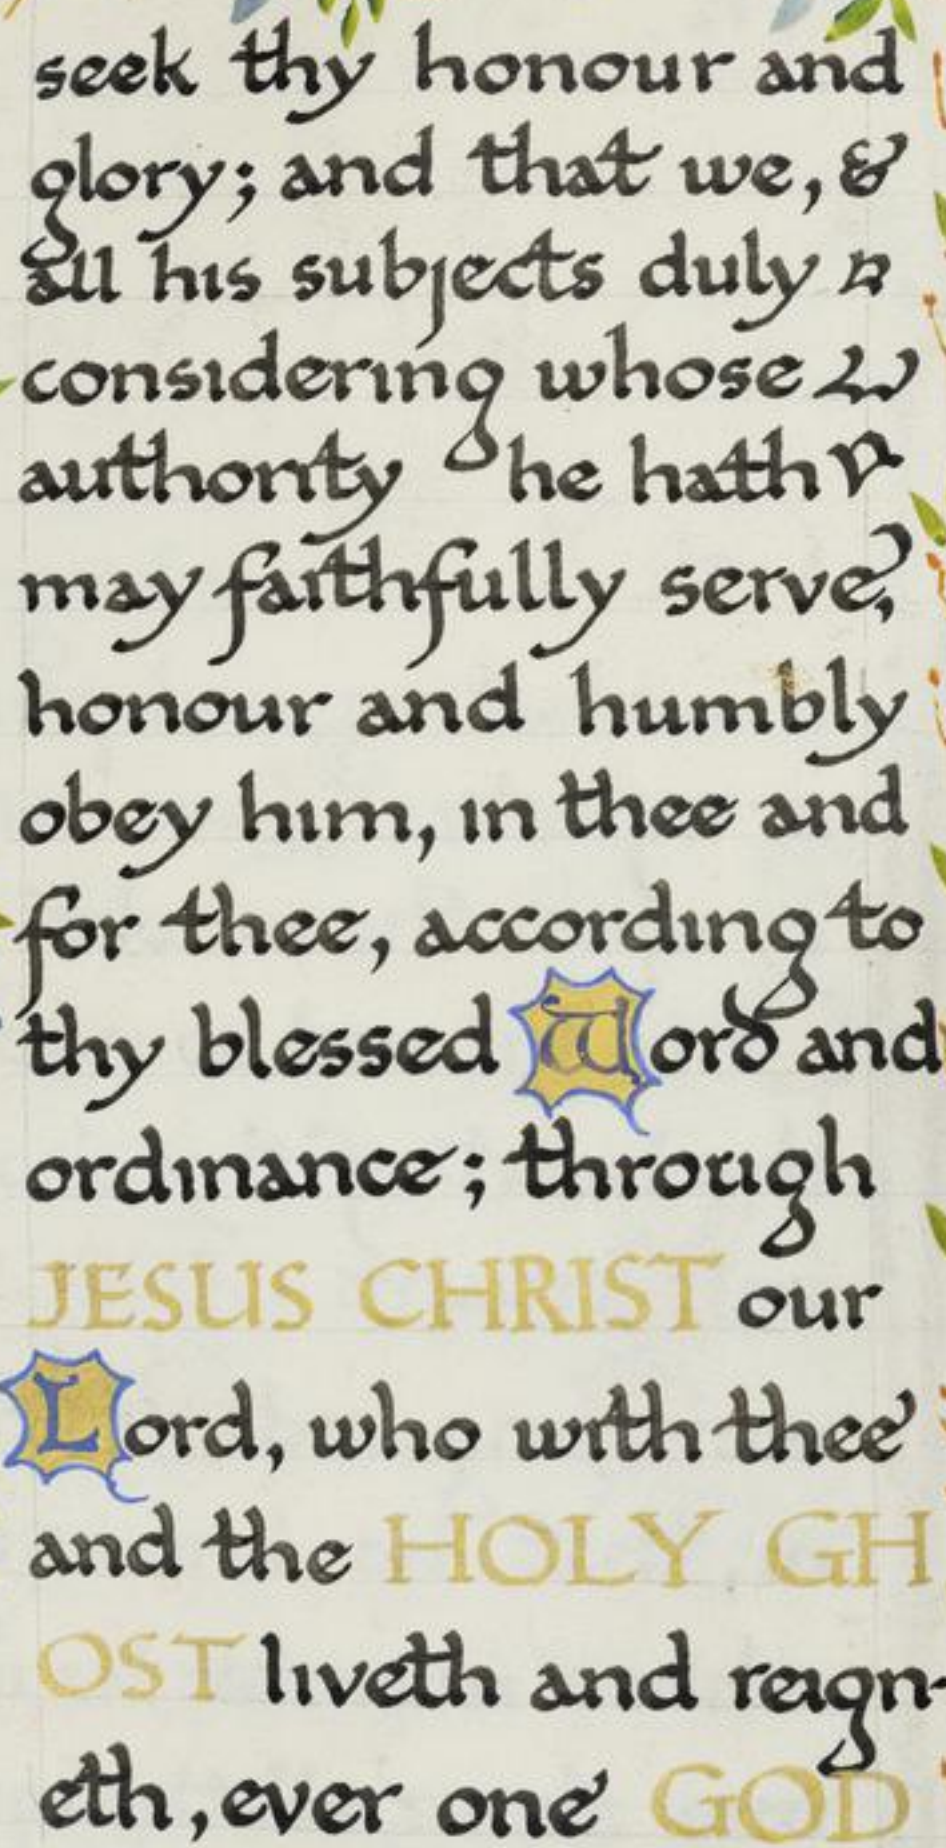 seek thy honour and
glory; and that we, &
all his subjects duly
considering whose
authority he hath
may faithfully serve,
honour and humbly
obey him, in thee and
for thee, according to
thy blessed Word and
ordinance; through
JESUS CHRIST our
Lord, who with thee
and the HOLY GH
OST liveth and reign-
eth, ever one GOD